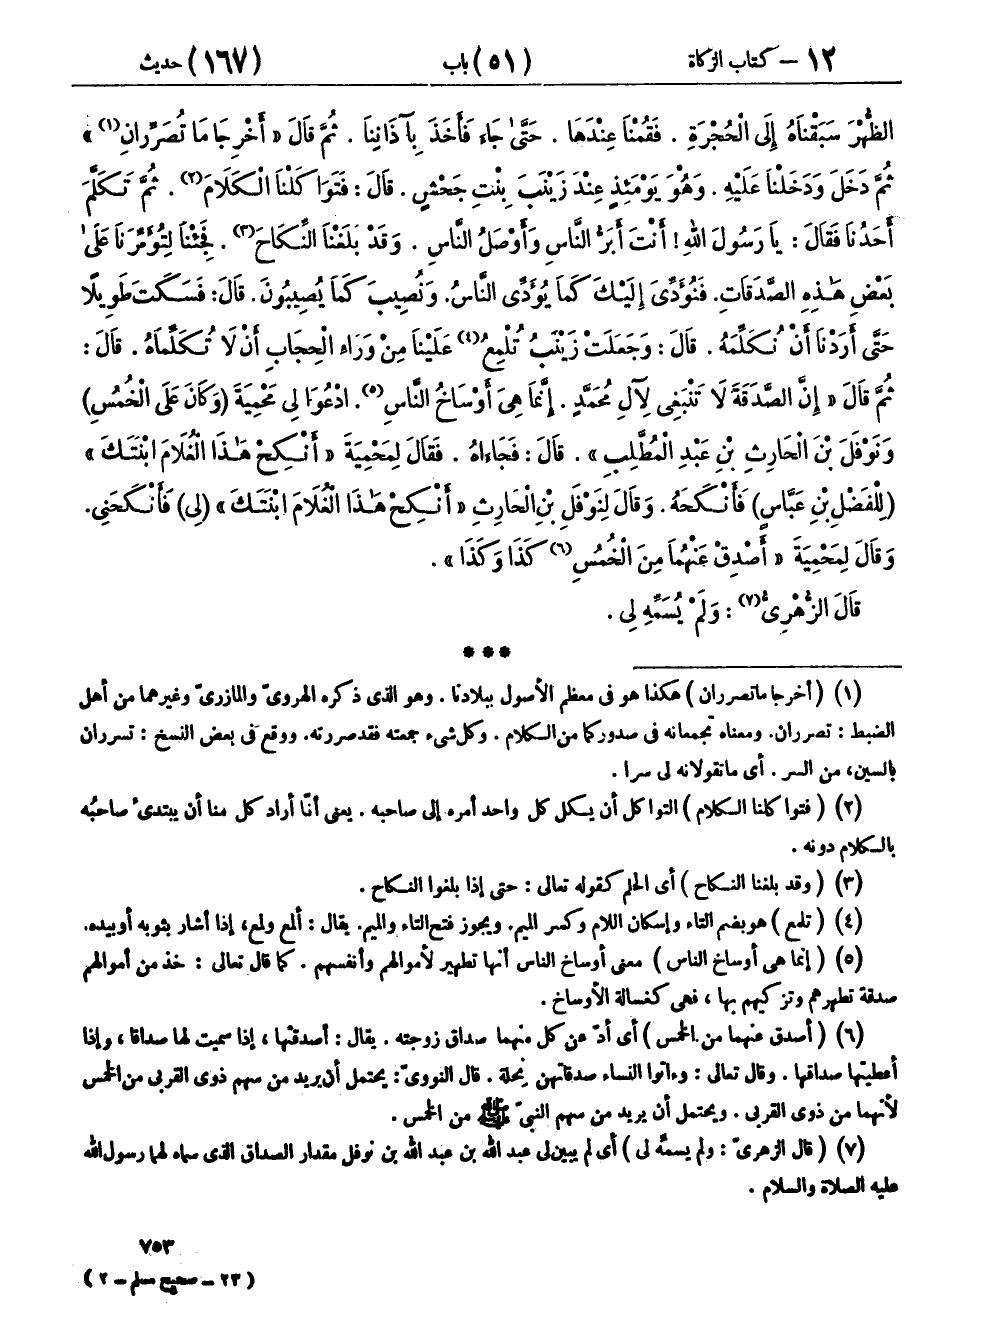 ١٢ – كتاب الزكاة (٥١) باب (١٦٧) حديث
الظُّهْرَ سَبَقْنَاهُ إِلَى الْحُجْرَةِ . فَقُمْنَا عِنْدَهَا . حَتَّىٰ جَاءَ فَأَخَذَ بِآذَانِنَا . ثُمَّ قَالَ « أَخْرِجَا مَا تُصَرِّرَانِ(١) »
ثُمَّ دَخَلَ وَدَخَلْنَا عَلَيْهِ . وَهُوَ يَوْمَئِذٍ عِنْدَ زَيْنَبَ بِنْتِ جَحْشٍ . قَالَ : فَتَوَاكَلْنَا الْكَلَامَ(٢) . ثُمَّ تَكَلَّمَ
أَحَدُنَا فَقَالَ : يَا رَسُولَ اللهِ ! أَنْتَ أَبَرُّ النَّاسِ وَأَوْصَلُ النَّاسِ . وَقَدْ بَلَغْنَا النِّكَاحَ(٣) . فَجِئْنَا لِتُؤَمِّرَنَا عَلَىٰ
بَعْضِ هَٰذِهِ الصَّدَقَاتِ . فَنُؤَدِّيَ إِلَيْكَ كَمَا يُؤَدِّي النَّاسُ . وَنُصِيبَ كَمَا يُصِيبُونَ . قَالَ : فَسَكَتَ طَوِيلًا
حَتَّى أَرَدْنَا أَنْ نُكَلِّمَهُ . قَالَ : وَجَعَلَتْ زَيْنَبُ تُلْمِعُ(٤) عَلَيْنَا مِنْ وَرَاءِ الْحِجَابِ أَنْ لَا تُكَلِّمَاهُ . قَالَ :
ثُمَّ قَالَ « إِنَّ الصَّدَقَةَ لَا تَنْبَغِي لِآلِ مُحَمَّدٍ . إِنَّمَا هِيَ أَوْسَاخُ النَّاسِ(٥) . ادْعُوَا لِي مَحْمِيَةَ (وَكَانَ عَلَى الْخُمُسِ)
وَنَوْفَلَ بْنَ الْحَارِثِ بْنِ عَبْدِ الْمُطَّلِبِ » . قَالَ : فَجَاءَاهُ . فَقَالَ لِمَحْمِيَةَ « أَنْكِحْ هَٰذَا الْغُلَامَ ابْنَتَكَ »
(لِلْفَضْلِ بْنِ عَبَّاسٍ) فَأَنْكَحَهُ . وَقَالَ لِنَوْفَلِ بْنِ الْحَارِثِ « أَنْكِحْ هَٰذَا الْغُلَامَ ابْنَتَكَ » (لِي) فَأَنْكَحَنِي .
وَقَالَ لِمَحْمِيَةَ « أَصْدِقْ عَنْهُمَا مِنَ الْخُمُسِ(٦) كَذَا وَكَذَا » .
قَالَ الزُّهْرِيُّ(٧) : وَلَمْ يُسَمِّهِ لِي .
* * *
(١) ( أخرجا ما تصرران ) هكذا هو فى معظم الأصول ببلادنا . وهو الذى ذكره الهروىّ والمازرىّ وغيرهما من أهل
الضبط : تصرران . ومعناه تجمعانه فى صدوركما من الكلام . وكل شىء جمعته فقد صررته . ووقع فى بعض النسخ : تسرران
بالسين، من السر . أى ما تقولانه لى سرا .
(٢) ( فتواكلنا الكلام ) التواكل أن يكل كل واحد أمره إلى صاحبه . يعنى أنّا أراد كل منا أن يبتدىء صاحبُه
بالكلام دونه .
(٣) ( وقد بلغنا النكاح ) أى الحلم كقوله تعالى : حتى إذا بلغوا النكاح .
(٤) ( تلمع ) هو بضم التاء وإسكان اللام وكسر الميم . ويجوز فتح التاء والميم . يقال : ألمع ولمع، إذا أشار بثوبه أو بيده .
(٥) ( إنما هى أوساخ الناس ) معنى أوساخ الناس أنها تطهير لأموالهم وأنفسهم . كما قال تعالى : خذ من أموالهم
صدقة تطهرهم وتزكيهم بها ، فهى كغسالة الأوساخ .
(٦) ( أصدق عنهما من الخمس ) أى أدّ عن كل منهما صداق زوجته . يقال : أصدقتها ، إذا سميت لها صداقا ، وإذا
أعطيتها صداقها . وقال تعالى : وءاتوا النساء صدقاتهن نحلة . قال النووىّ : يحتمل أن يريد من سهم ذوى القربى من الخمس
لأنهما من ذوى القربى . ويحتمل أن يريد من سهم النبىّ ﷺ من الخمس .
(٧) ( قال الزهرىّ : ولم يسمِّه لى ) أى لم يبين لى عبد الله بن عبد الله بن نوفل مقدار الصداق الذى سماه لهما رسول الله
عليه الصلاة والسلام .
٧٥٣
( ٢٣ – صحيح مسلم – ٢ )